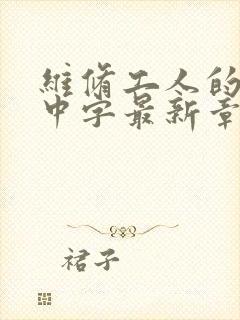 維脩工人的
中字最新章
裙子